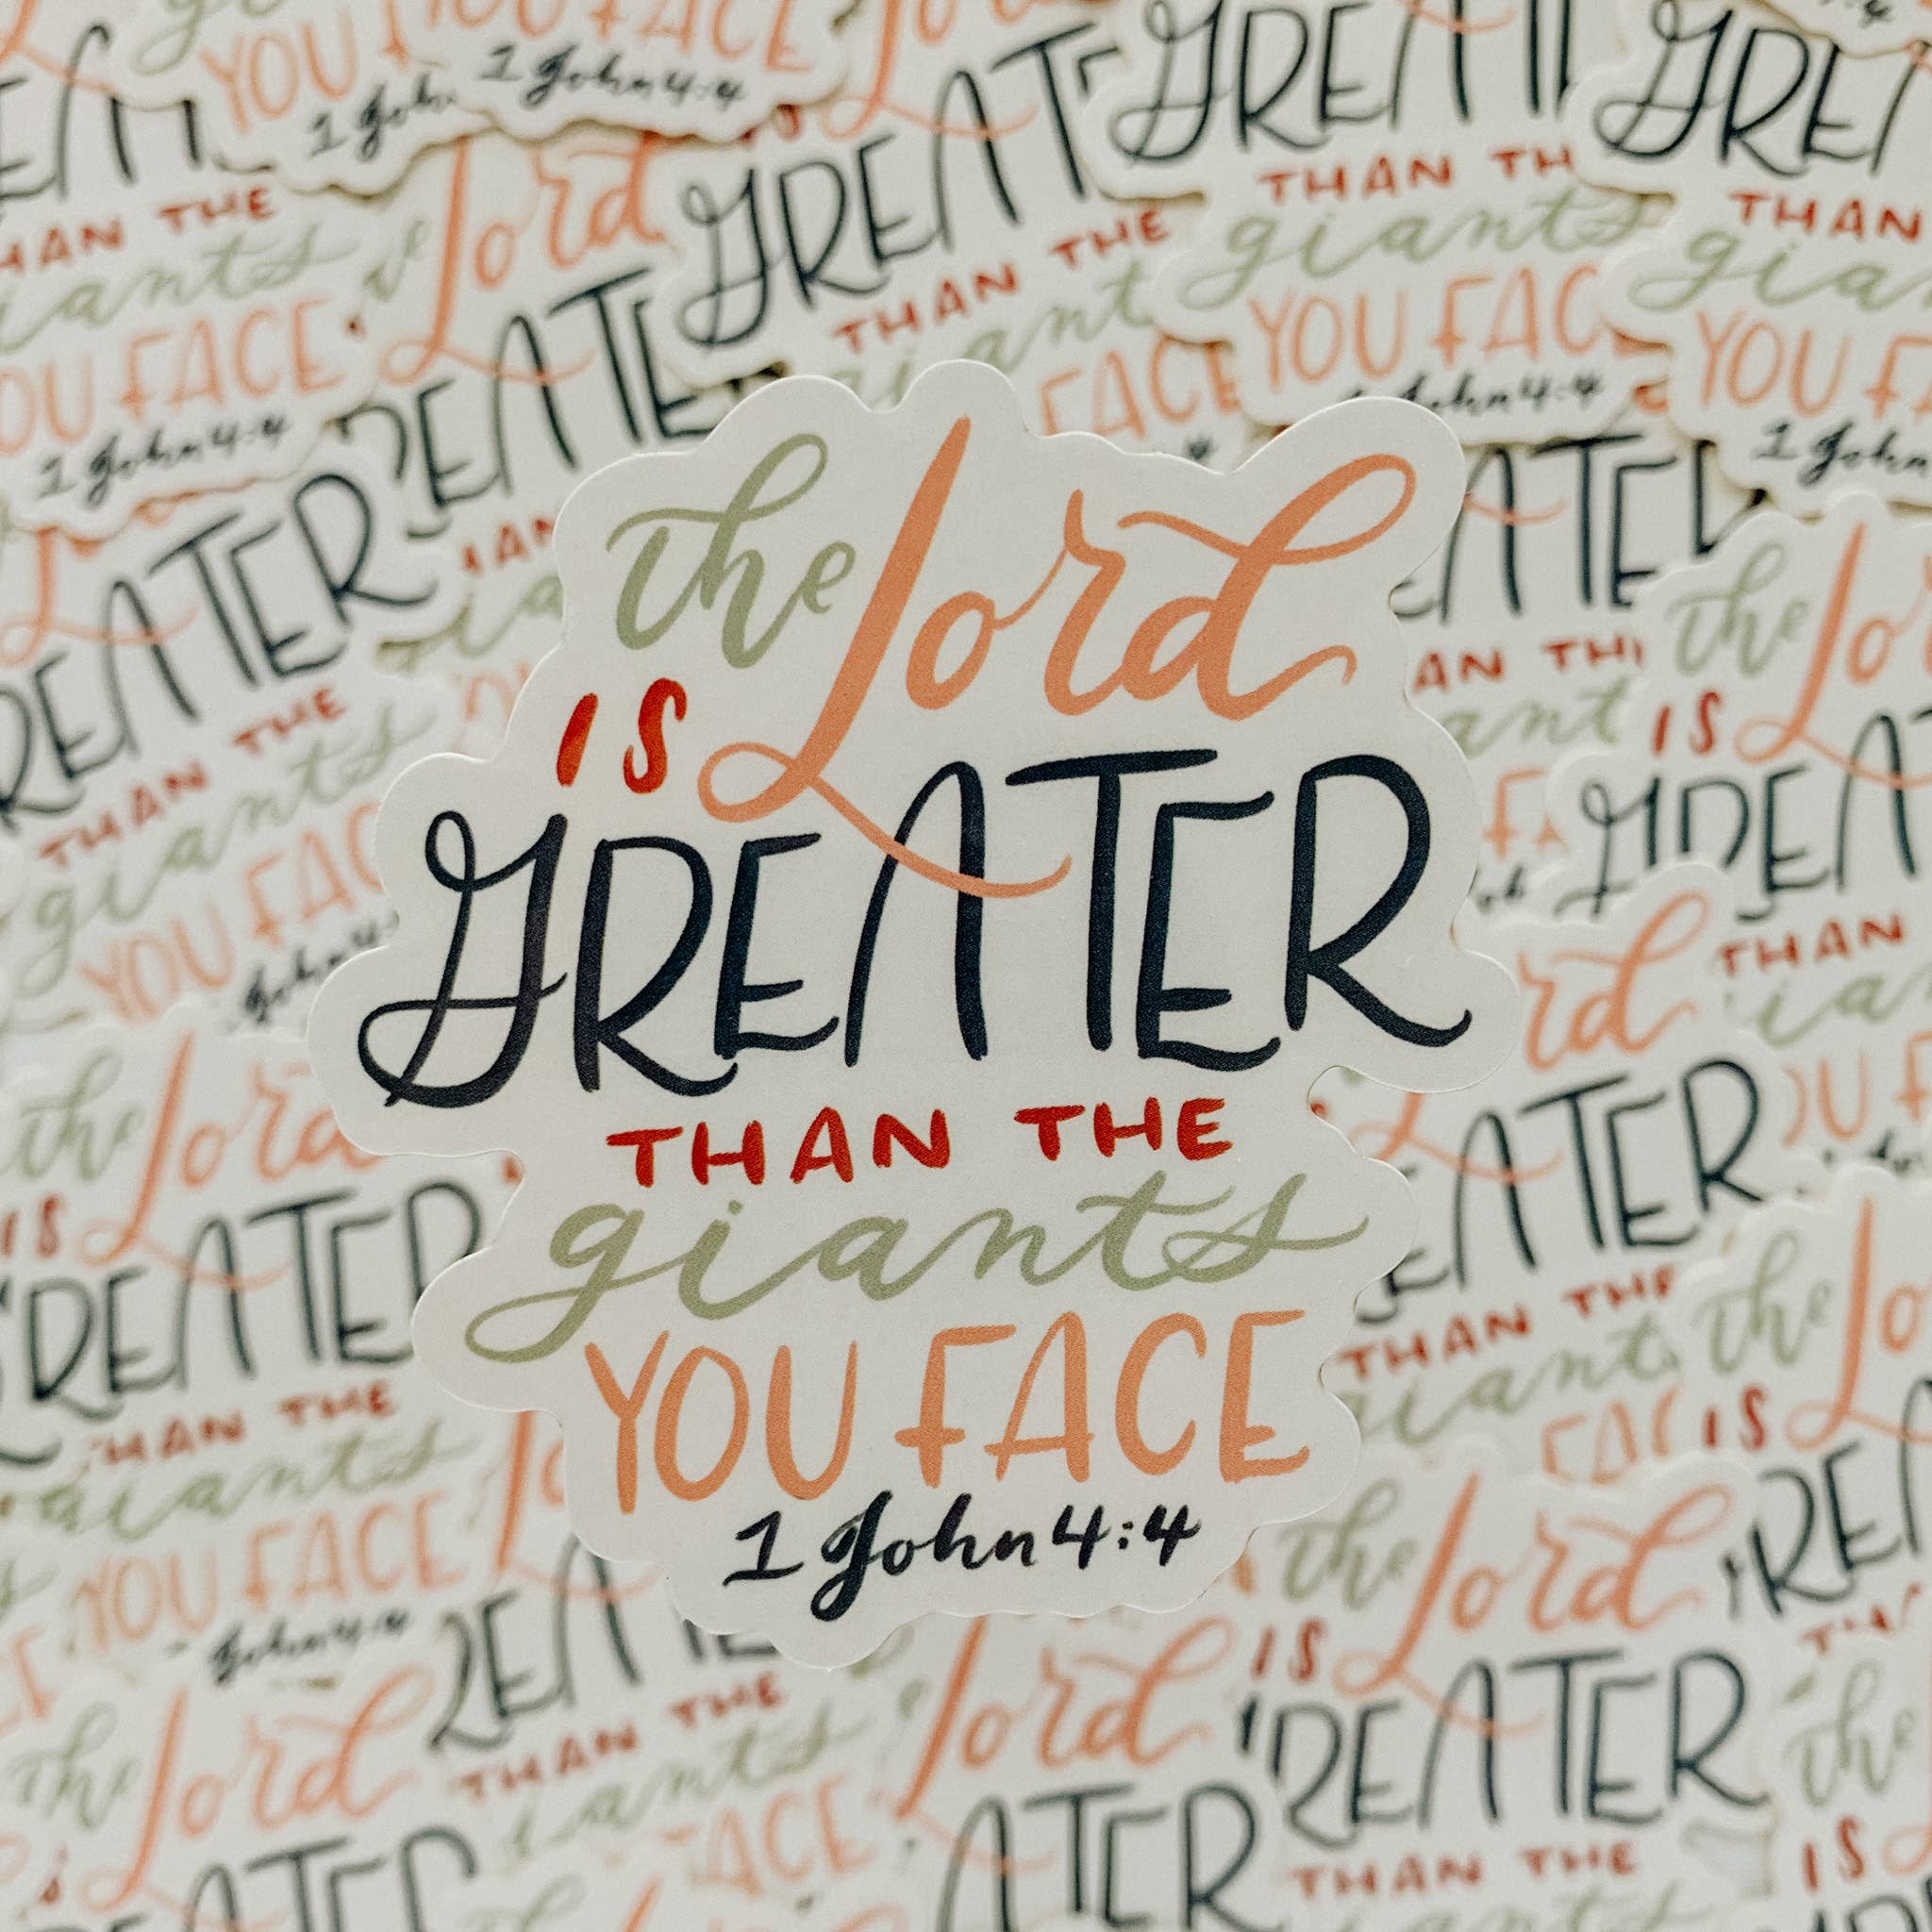 the Lord
IS
GREATER
THAN THE
giants
YOU FACE
1 John 4:4